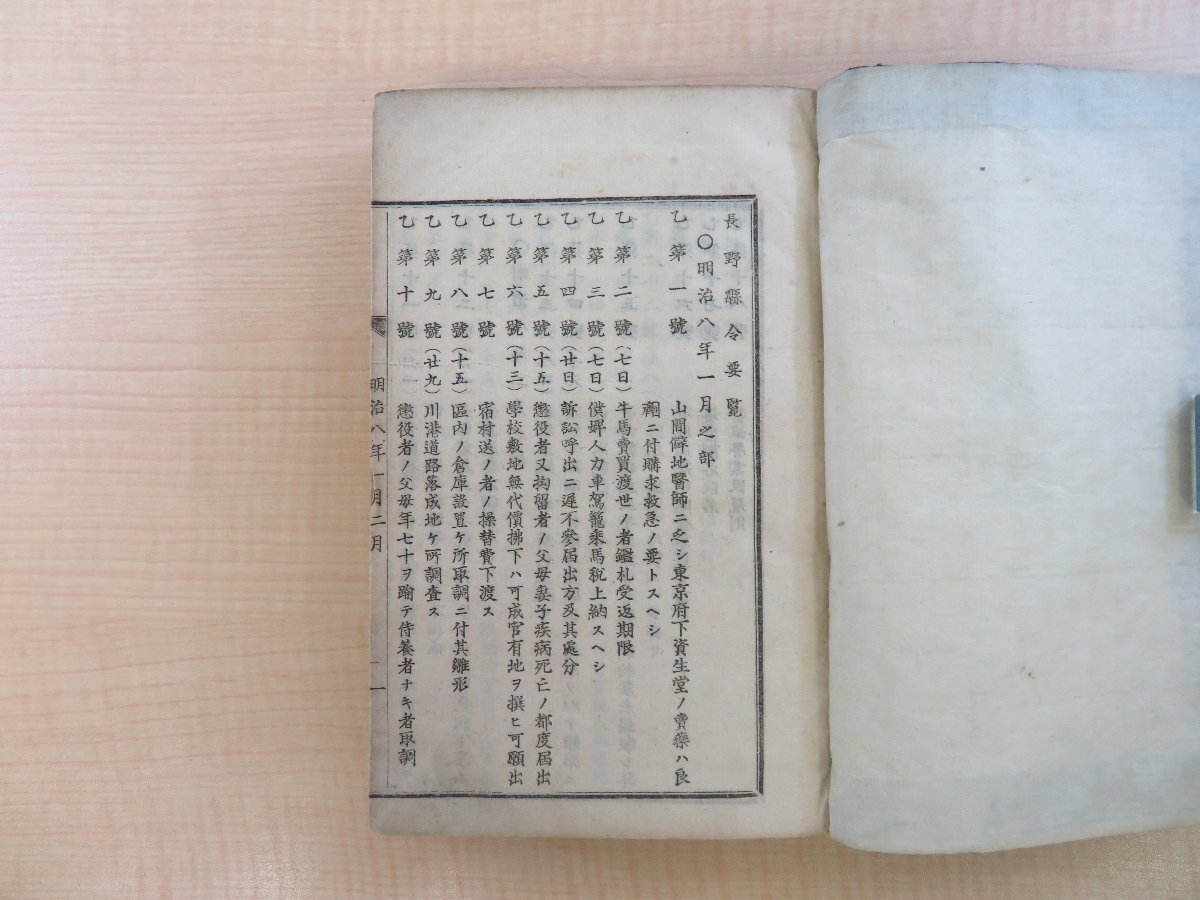 長野縣令要覧
○明治八年一月之部
乙第一號 山間僻地醫師ニ乏シ東京府下資生堂ノ賣藥ハ良
劑ニ付購求救急ノ要トスヘシ
乙第二號(七日)牛馬賣買渡世ノ者鑑札受返期限
乙第三號(七日)僕婢人力車駕籠乘馬税上納スヘシ
乙第四號(廿日)訴訟呼出ニ遲不參届出方及其處分
乙第五號(十五)懲役者又拘留者ノ父母妻子疾病死亡ノ都度届出
乙第六號(十三)學校敷地無代價拂下ハ可成官有地ヲ撰ヒ可願出
乙第七號 宿村送ノ者ノ操替費下渡ス
乙第八號(十五)區内ノ倉庫設置ケ所取調ニ付其雛形
乙第九號(廿九)川港道路落成地ケ所調査ス
乙第十號 懲役者ノ父母年七十ヲ踰テ侍養者ナキ者取調
明治八年一月二月 一